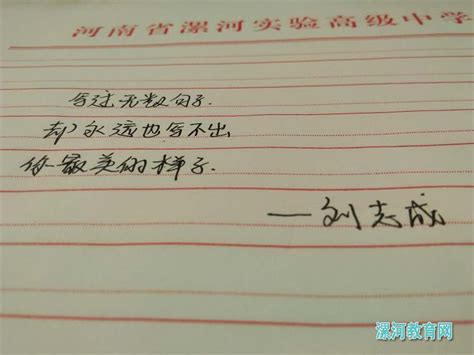 河南省漯河实验高级中学
写过无数句子.
却永远也写不出
你最美的样子.
——刘志成
漯河教育网